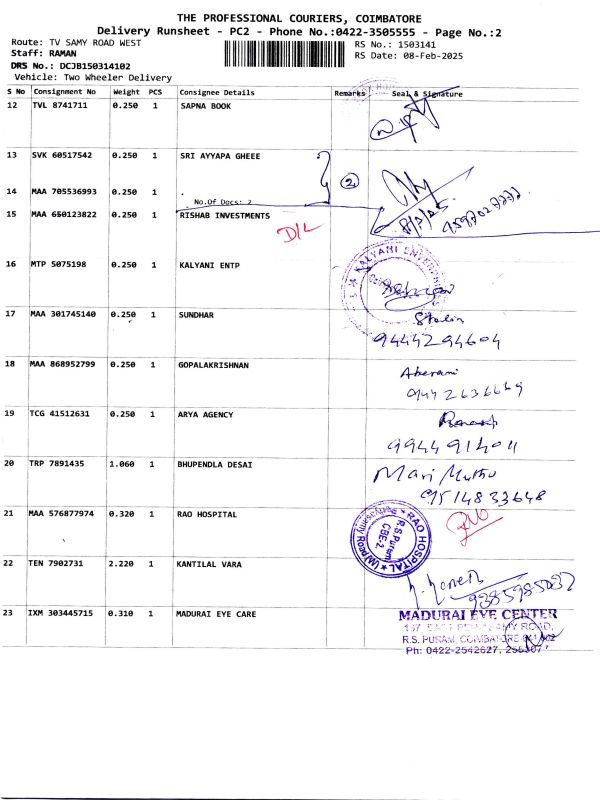 THE PROFESSIONAL COURIERS, COIMBATORE
Delivery Runsheet - PC2 - Phone No.:0422-3505555 - Page No.:2
Route: TV SAMY ROAD WEST
Staff: RAMAN
DRS No.: DCJB150314102
Vehicle: Two Wheeler Delivery
RS No.: 1503141
RS Date: 08-Feb-2025
S No Consignment No Weight PCS Consignee Details Remarks Seal & Signature
12 TVL 8741711 0.250 1 SAPNA BOOK
13 SVK 60517542 0.250 1 SRI AYYAPA GHEEE
14 MAA 705536993 0.250 1 .
No.Of Docs: 2
2
8/2/25
9597027777
15 MAA 650123822 0.250 1 RISHAB INVESTMENTS
D/L
16 MTP 5075198 0.250 1 KALYANI ENTP
KALYANI ENTERPRISES
17 MAA 301745140 0.250 1 SUNDHAR
Stalin
9444294604
18 MAA 868952799 0.250 1 GOPALAKRISHNAN
Aberami
9442636669
19 TCG 41512631 0.250 1 ARYA AGENCY
9944914011
20 TRP 7891435 1.060 1 BHUPENDLA DESAI
Mari Muthu
9514833648
21 MAA 576877974 0.320 1 RAO HOSPITAL
RAO HOSPITAL
R.S.Puram
CBE-2
22 TEN 7902731 2.220 1 KANTILAL VARA
9385985037
23 IXM 303445715 0.310 1 MADURAI EYE CARE
MADURAI EYE CENTER
R.S. PURAM, COIMBATORE
Ph: 0422-2542627,